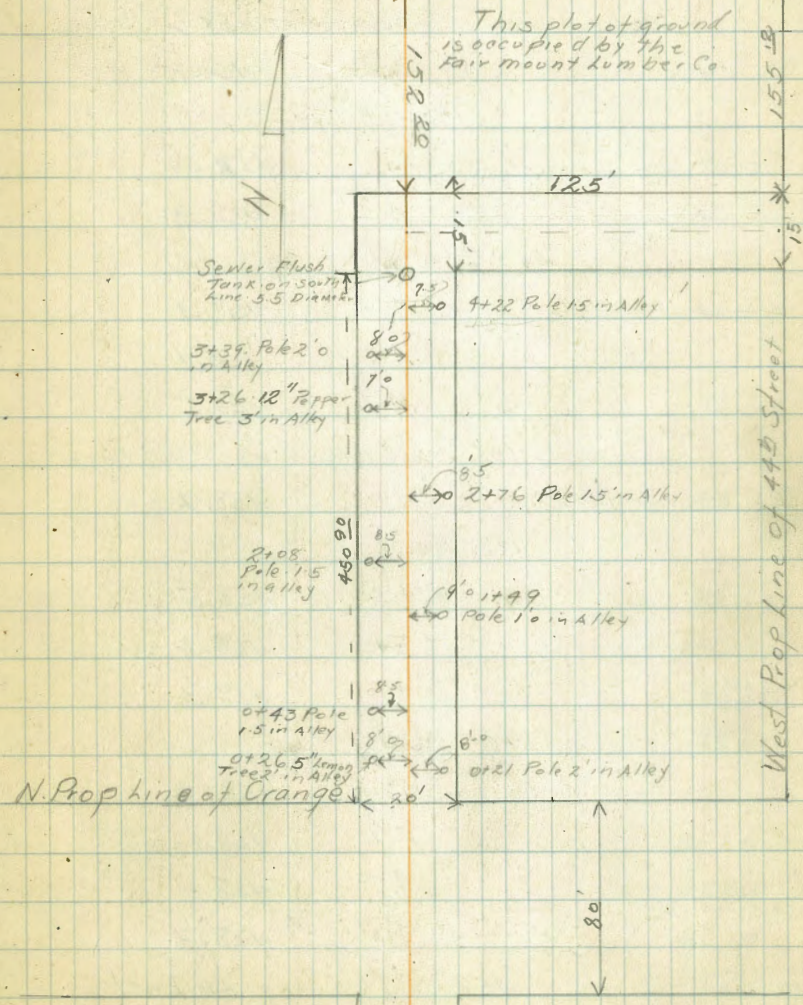 This plot of ground
is occupied by the
Fairmount Lumber Co
152 20
155 12
N
125'
15'
15'
Sewer Flush
Tank on South
Line 5.5 Diameter
7.5
4+22 Pole 1.5 in Alley
8'0
3+39 Pole 2'0
in Alley
7'0
3+26 12" Pepper
Tree 3' in Alley
8'5
2+76 Pole 1.5' in Alley
450 90
8.5
2+08
Pole 1.5
in alley
9'0 1+49
Pole 1'0 in Alley
8.5
0+43 Pole
1.5 in Alley
8'0
0+26 5" Lemon
Tree 2' in Alley
8'-0
0+21 Pole 2' in Alley
N. Prop Line of Orange
20'
West Prop Line of 44th Street
80'